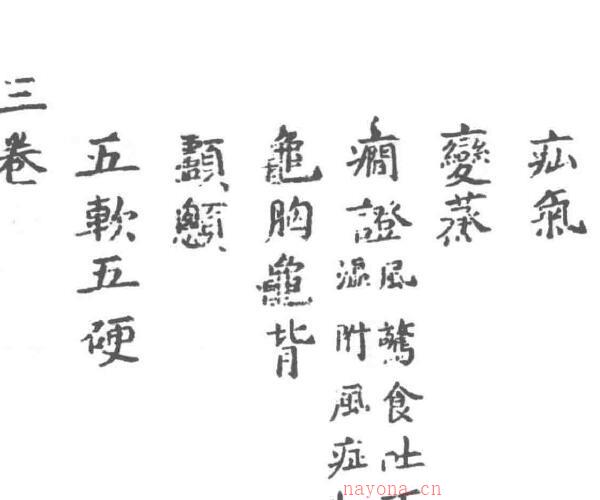 疝氣
變蒸
癇證
風驚食吐
附風症
龜胸龜背
五軟五硬
三卷
nayona.cn